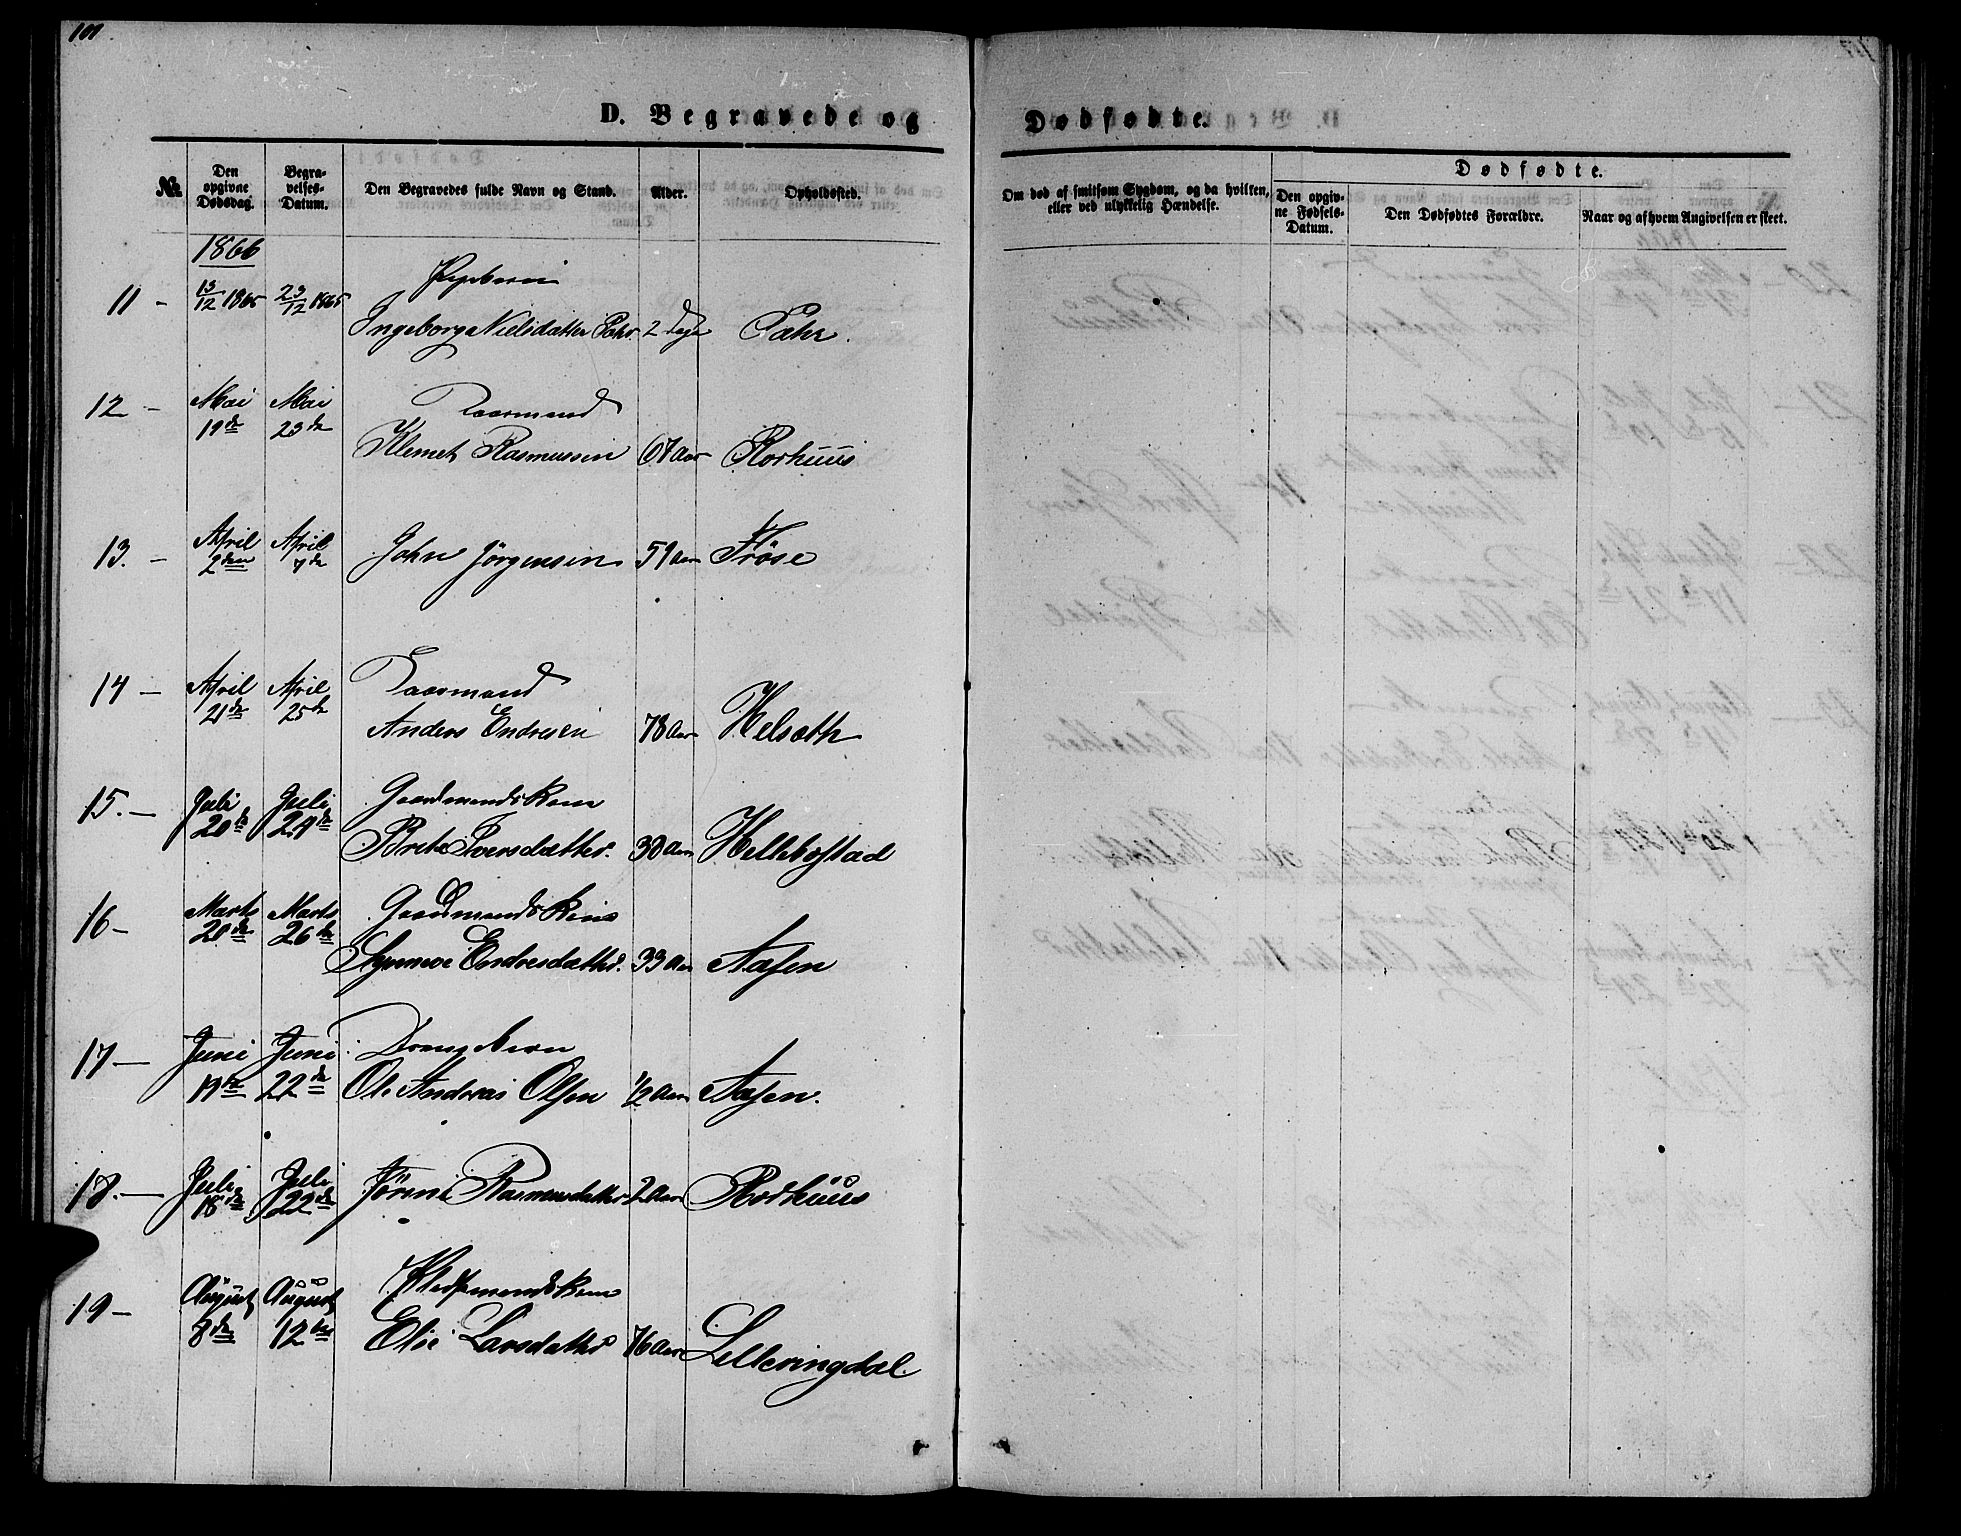 101
D. Begravede og
Dødfødte.
№
Den opgivne Dødsdag.
Begravelses-Datum.
Den Begravedes fulde Navn og Stand.
Alder.
Opholdssted.
Om død af smitsom Sygdom, og da hvilken, eller ved ulykkelig Hændelse.
Dødfødte.
Den opgivne Fødsels-Datum.
Den Dødfødtes Forældre.
Naar og af hvem Angivelsen er skeet.
1866
11 - 13/12 1865 23/12 1865
Ingeborg Nielsdatter 2 Dage
12 - Mai 19de Mai 23de
Klemet Rasmussen 67 Aar Rorhuus
13. - April 2den April 7de John Jörgensen 51 Aar Fröse
14 - April 21de April 25de Kaarmand
Anders Endresen 78 Aar Helsæth
15. - Juli 20de Juli 24de Gaardmandskone
Brite Iversdatter. 30 Aar Hellebostad
16 - Marts 20de Marts 26de Gaardmandskone
Synneve Endresdatter. 33 Aar Aasen
17 - Juni 19de Juni 22de Drengebarn
Ole Andreas Olsen 1/2 Aar Aasen.
18. - Juli 18de Juli 22de Jörine Rasmusdatter 2 Aar Rorhuus
19 - August 8de August 12te
Elie Larsdatter 76 Aar Lilleringdal